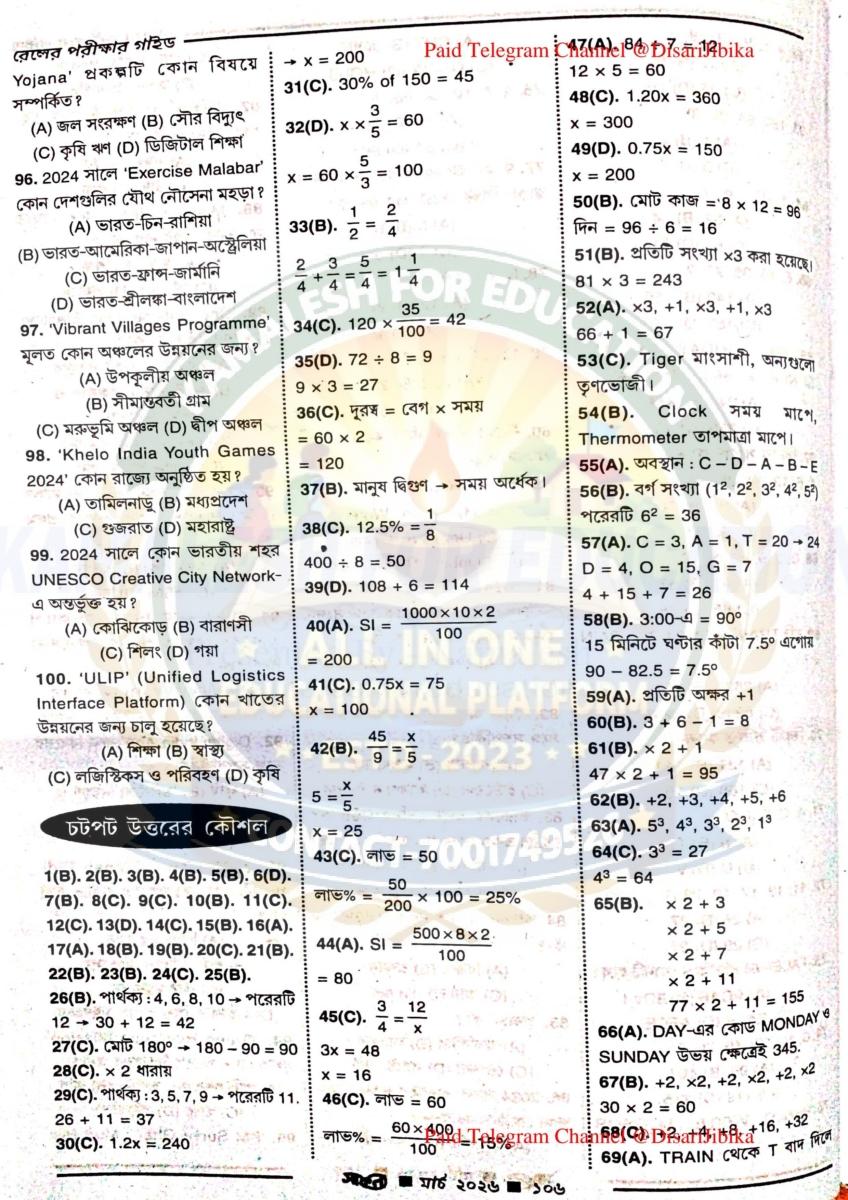 রেলের পরীক্ষার গাইড
Paid Telegram Channel @DisariJibika
Yojana' প্রকল্পটি কোন বিষয়ে
সম্পর্কিত?
(A) জল সংরক্ষণ (B) সৌর বিদ্যুৎ
(C) কৃষি ঋণ (D) ডিজিটাল শিক্ষা
96. 2024 সালে 'Exercise Malabar'
কোন দেশগুলির যৌথ নৌসেনা মহড়া?
(A) ভারত-চিন-রাশিয়া
(B) ভারত-আমেরিকা-জাপান-অস্ট্রেলিয়া
(C) ভারত-ফ্রান্স-জার্মানি
(D) ভারত-শ্রীলঙ্কা-বাংলাদেশ
97. 'Vibrant Villages Programme'
মূলত কোন অঞ্চলের উন্নয়নের জন্য?
(A) উপকূলীয় অঞ্চল
(B) সীমান্তবর্তী গ্রাম
(C) মরুভূমি অঞ্চল (D) দ্বীপ অঞ্চল
98. 'Khelo India Youth Games
2024' কোন রাজ্যে অনুষ্ঠিত হয়?
(A) তামিলনাড়ু (B) মধ্যপ্রদেশ
(C) গুজরাত (D) মহারাষ্ট্র
99. 2024 সালে কোন ভারতীয় শহর
UNESCO Creative City Network-
এ অন্তর্ভুক্ত হয়?
(A) কোঝিকোড় (B) বারাণসী
(C) শিলং (D) গয়া
100. 'ULIP' (Unified Logistics
Interface Platform) কোন খাতের
উন্নয়নের জন্য চালু হয়েছে?
(A) শিক্ষা (B) স্বাস্থ্য
(C) লজিস্টিকস ও পরিবহণ (D) কৃষি
চটপট উত্তরের কৌশল
1(B). 2(B). 3(B). 4(B). 5(B). 6(D).
7(B). 8(C). 9(C). 10(B). 11(C).
12(C). 13(D). 14(C). 15(B). 16(A).
17(A). 18(B). 19(B). 20(C). 21(B).
22(B). 23(B). 24(C). 25(B).
26(B). পার্থক্য : 4, 6, 8, 10 → পরেরটি
12 → 30 + 12 = 42
27(C). মোট 180° → 180 – 90 = 90
28(C). × 2 ধারায়
29(C). পার্থক্য : 3, 5, 7, 9 → পরেরটি 11.
26 + 11 = 37
30(C). 1.2x = 240
→ x = 200
31(C). 30% of 150 = 45
32(D). x × 3/5 = 60
x = 60 × 5/3 = 100
33(B). 1/2 = 2/4
2/4 + 3/4 = 5/4 = 1 1/4
34(C). 120 × 35/100 = 42
35(D). 72 ÷ 8 = 9
9 × 3 = 27
36(C). দূরত্ব = বেগ × সময়
= 60 × 2
= 120
37(B). মানুষ দ্বিগুণ → সময় অর্ধেক।
38(C). 12.5% = 1/8
400 ÷ 8 = 50
39(D). 108 + 6 = 114
40(A). SI = 1000×10×2/100
= 200
41(C). 0.75x = 75
x = 100
42(B). 45/9 = x/5
5 = x/5
x = 25
43(C). লাভ = 50
লাভ% = 50/200 × 100 = 25%
44(A). SI = 500×8×2/100
= 80
45(C). 3/4 = 12/x
3x = 48
x = 16
46(C). লাভ = 60
লাভ% = 60×400/100 = 15%
47(A). 84 ÷ 7 = 12
12 × 5 = 60
48(C). 1.20x = 360
x = 300
49(D). 0.75x = 150
x = 200
50(B). মোট কাজ = 8 × 12 = 96
দিন = 96 ÷ 6 = 16
51(B). প্রতিটি সংখ্যা ×3 করা হয়েছে।
81 × 3 = 243
52(A). ×3, +1, ×3, +1, ×3
66 + 1 = 67
53(C). Tiger মাংসাশী, অন্যগুলো
তৃণভোজী।
54(B). Clock সময় মাপে,
Thermometer তাপমাত্রা মাপে।
55(A). অবস্থান : C – D – A – B – E
56(B). বর্গ সংখ্যা (1², 2², 3², 4², 5²)
পরেরটি 6² = 36
57(A). C = 3, A = 1, T = 20 → 24
D = 4, O = 15, G = 7
4 + 15 + 7 = 26
58(B). 3:00-এ = 90°
15 মিনিটে ঘণ্টার কাঁটা 7.5° এগোয়
90 – 82.5 = 7.5°
59(A). প্রতিটি অক্ষর +1
60(B). 3 + 6 – 1 = 8
61(B). × 2 + 1
47 × 2 + 1 = 95
62(B). +2, +3, +4, +5, +6
63(A). 5³, 4³, 3³, 2³, 1³
64(C). 3³ = 27
4³ = 64
65(B). × 2 + 3
× 2 + 5
× 2 + 7
× 2 + 11
77 × 2 + 11 = 155
66(A). DAY-এর কোড MONDAY ও
SUNDAY উভয় ক্ষেত্রেই 345.
67(B). +2, ×2, +2, ×2, +2, ×2
30 × 2 = 60
68(C). +2, +4, +8, +16, +32
69(A). TRAIN থেকে T বাদ দিলে
Paid Telegram Channel @DisariJibika
মার্চ ২০২৬ ■ ১০৬
KAMALESH FOR EDUCATION
ALL IN ONE
EDUCATIONAL PLATFORM
ESTD-2023